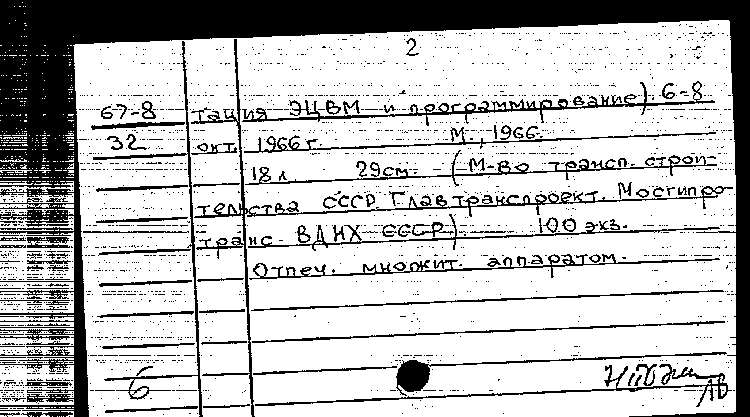 2
67-8 тация ЭЦВМ и программирование). 6-8
32 окт. 1966 г. М., 1966.
18 л. 29 см. (М-во трансп. строи-
тельства СССР. Главтранспроект. Мосгипро-
транс. ВДНХ СССР). 100 экз.
Отпеч. множит. аппаратом.
6
ЛВ